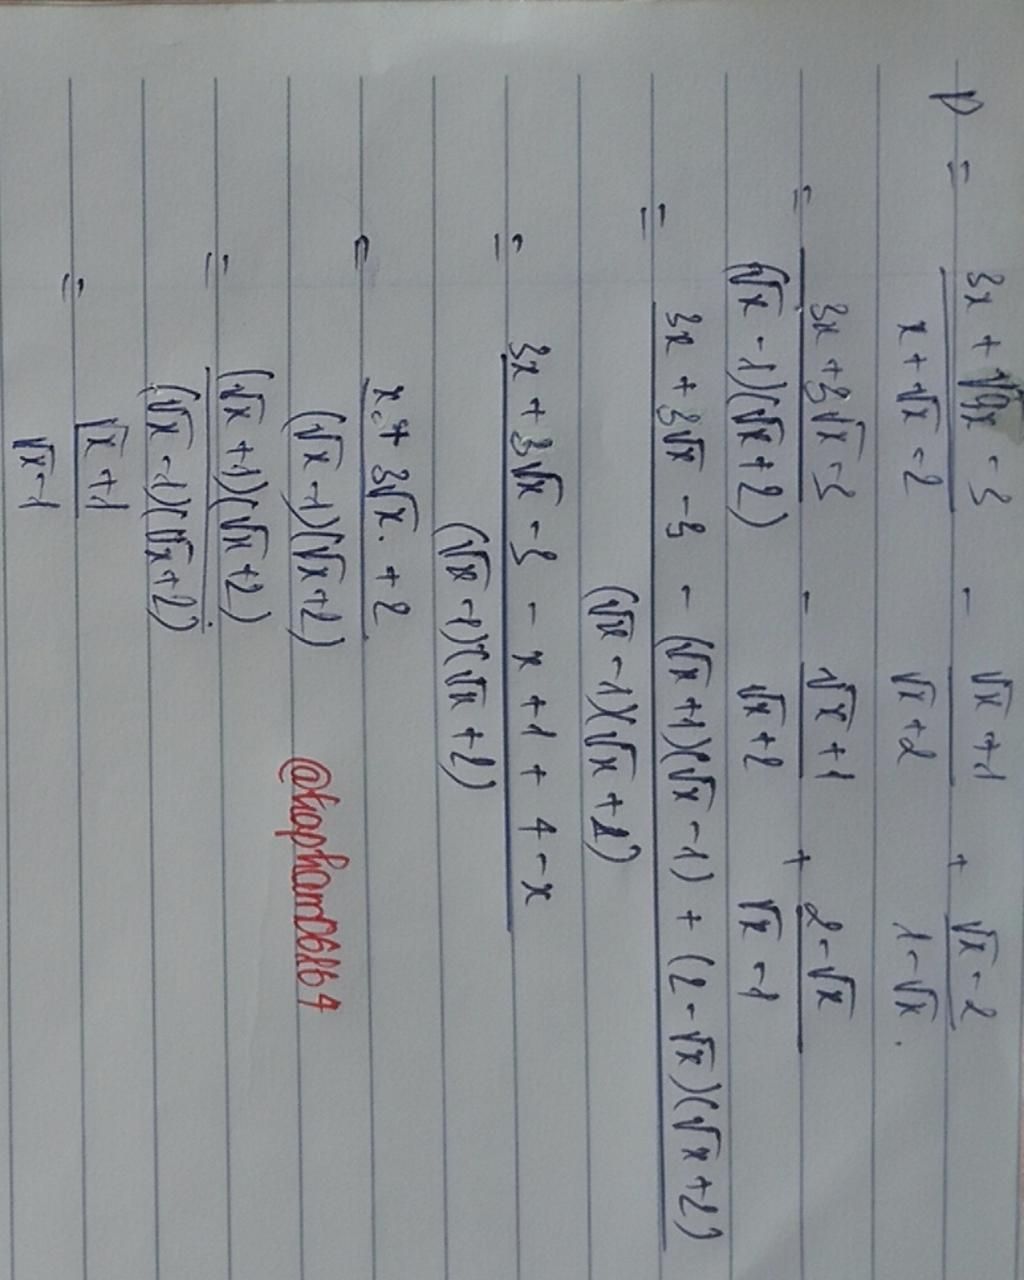 P = (3x + √9x - 3)/(x + √x - 2) - (√x + 1)/(√x + 2) + (√x - 2)/(1 - √x).
= (3x + 3√x - 3)/((√x - 1)(√x + 2)) - (√x + 1)/(√x + 2) + (2 - √x)/(√x - 1)
= (3x + 3√x - 3 - (√x + 1)(√x - 1) + (2 - √x)(√x + 2))/((√x - 1)(√x + 2))
= (3x + 3√x - 3 - x + 1 + 4 - x)/((√x - 1)(√x + 2))
= (x + 3√x + 2)/((√x - 1)(√x + 2))
= ((√x + 1)(√x + 2))/((√x - 1)(√x + 2))
= (√x + 1)/(√x - 1)